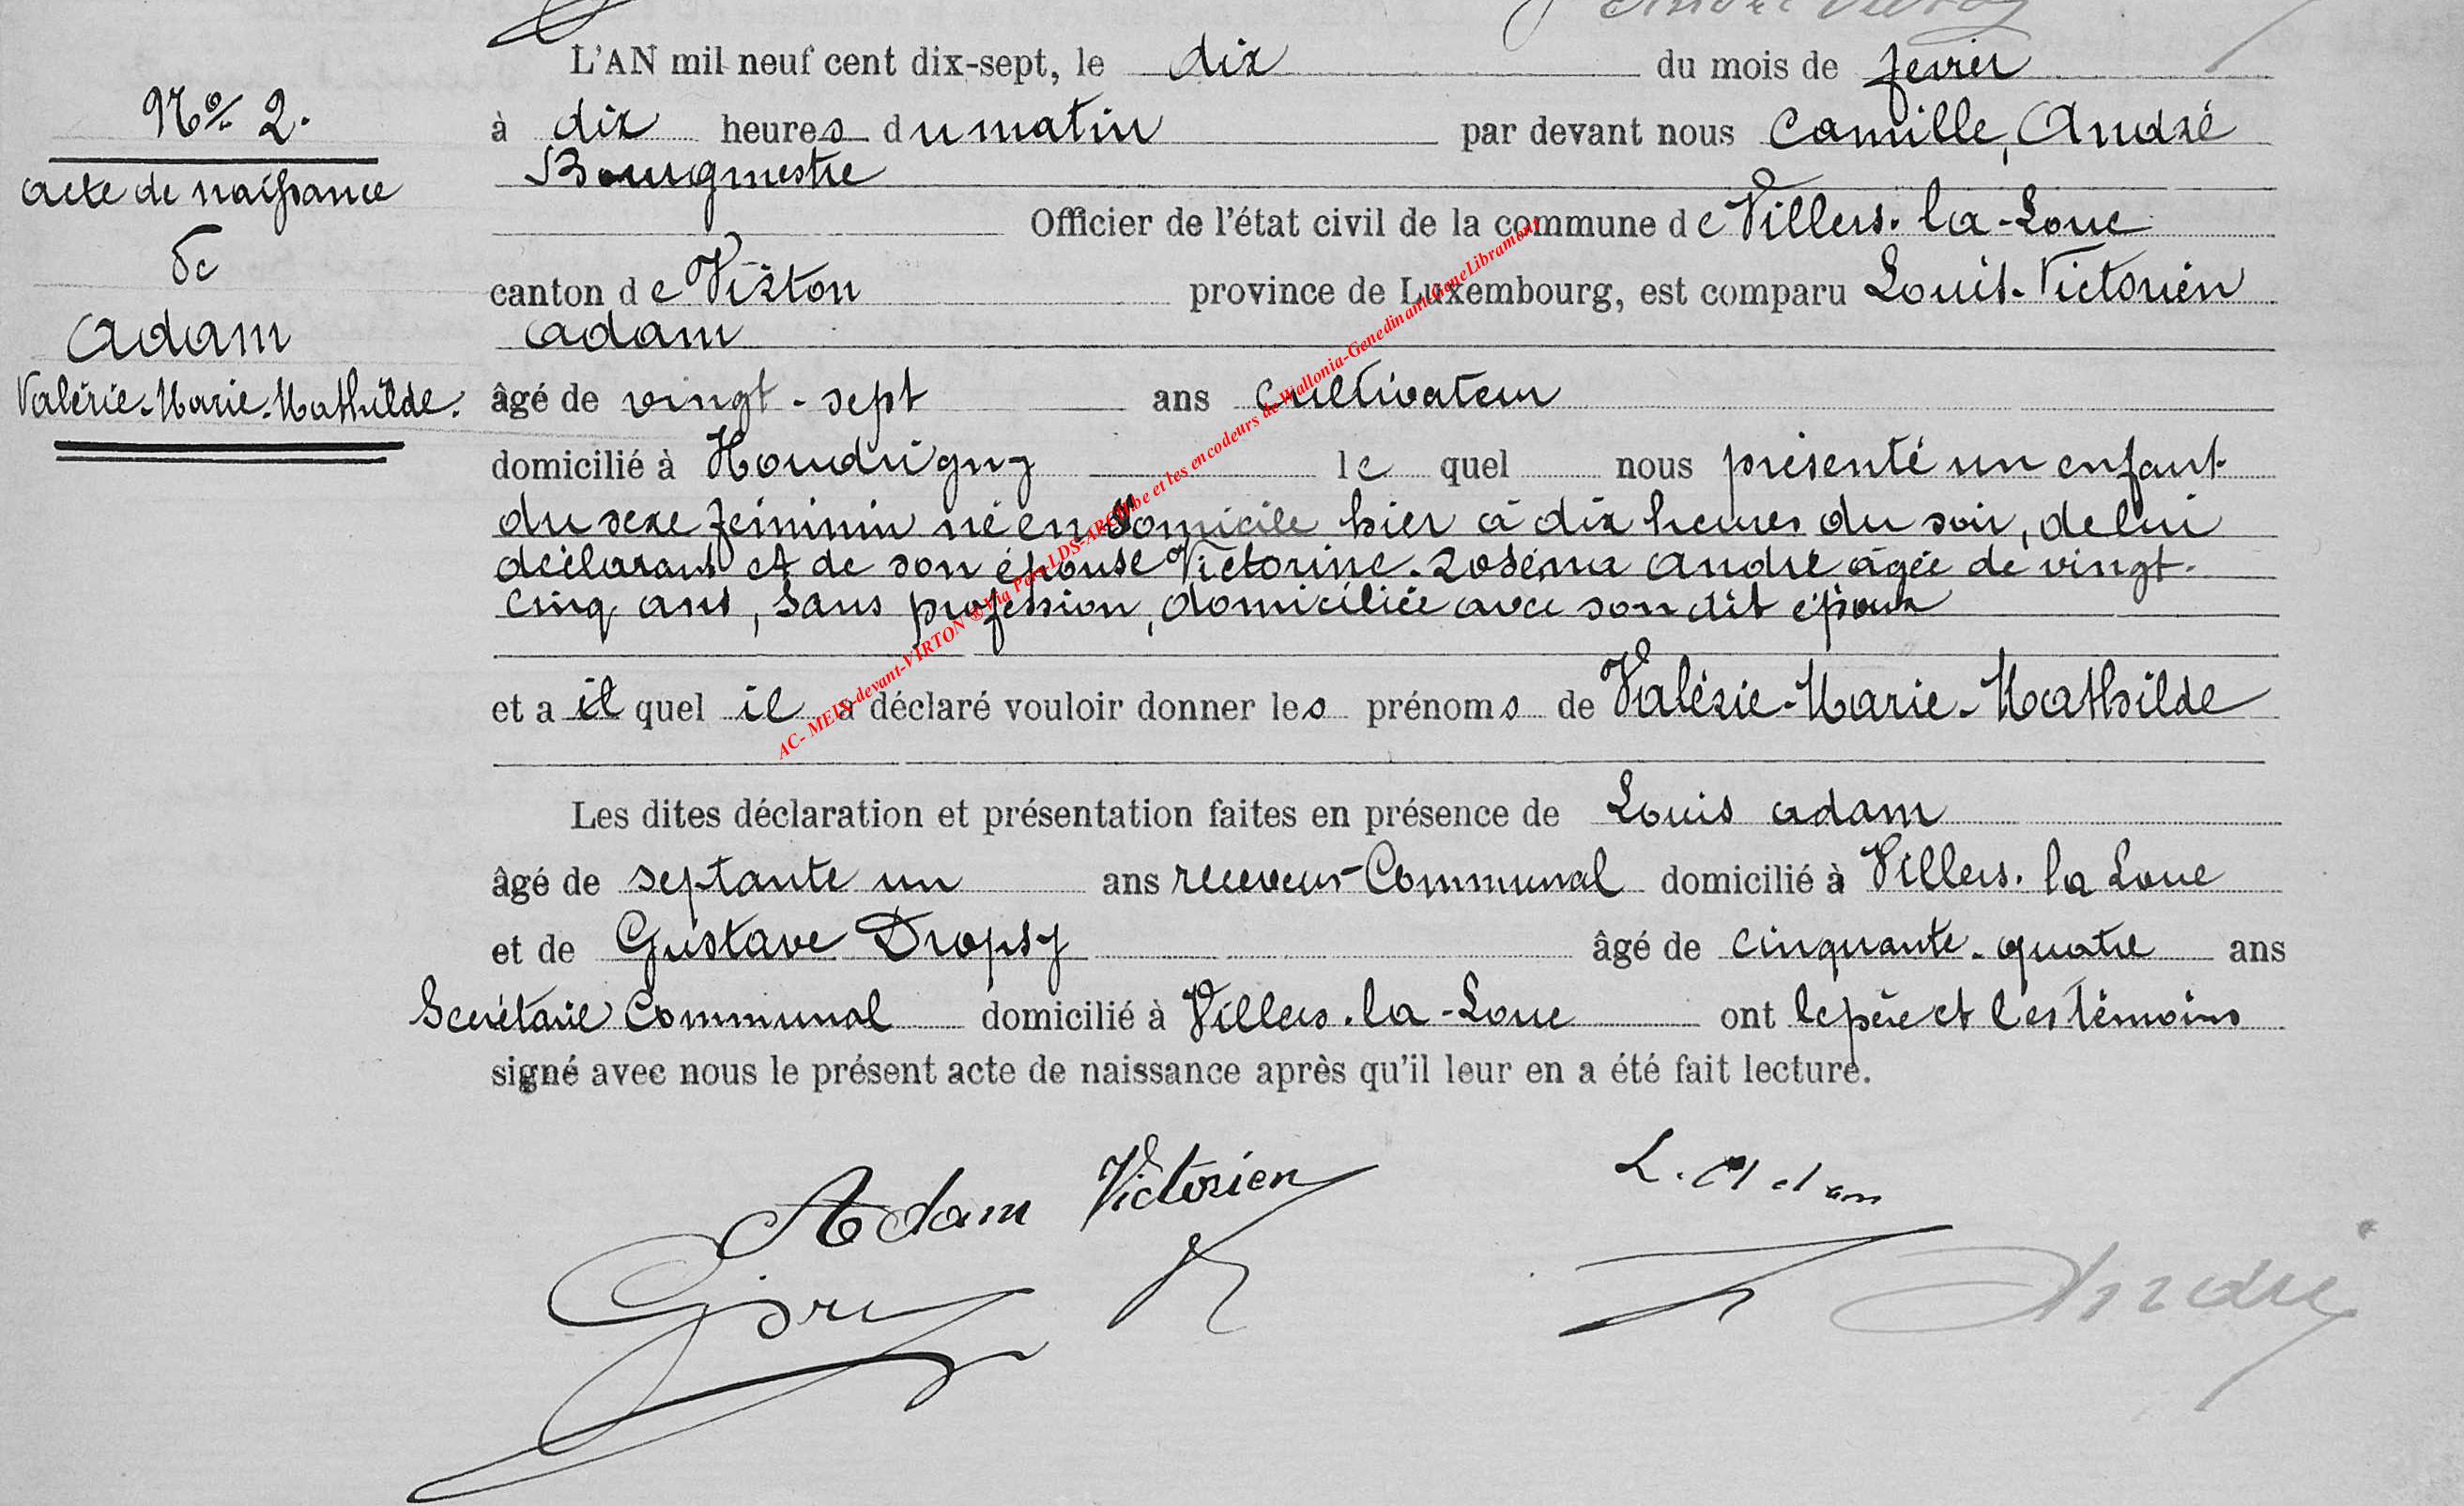 L'AN mil neuf cent dix-sept, le dix du mois de fevrier
No 2.
à dix heures du matin par devant nous Camille, André
Bourgmestre
acte de naissance
Officier de l'état civil de la commune de Villers-la-Loue
de
canton de Virton province de Luxembourg, est comparu Louis-Victorien
Adam
Adam
Valérie-Marie-Mathilde.
âgé de vingt-sept ans Cultivateur
domicilié à Houdrigny le quel nous présenté un enfant
du sexe féminin né en domicile hier à dix heures du soir, de lui
déclarant et de son épouse Victorine-Roséma André âgée de vingt-
cinq ans, sans profession, domiciliée avec son dit époux
et a il quel il a déclaré vouloir donner les prénoms de Valérie-Marie-Mathilde
Les dites déclaration et présentation faites en présence de Louis Adam
âgé de septante un ans receveur Communal domicilié à Villers-la Loue
et de Gustave Dropsy âgé de cinquante-quatre ans
Secrétaire Communal domicilié à Villers-la-Loue ont le père et les témoins
signé avec nous le présent acte de naissance après qu'il leur en a été fait lecture.
Adam Victorien
L. Adam
André
AC- MEIX-devant-VIRTON ® Via Pers LDS-ARCH.be et les encodeurs de Wallonia-Genedinant-GeneLibramont